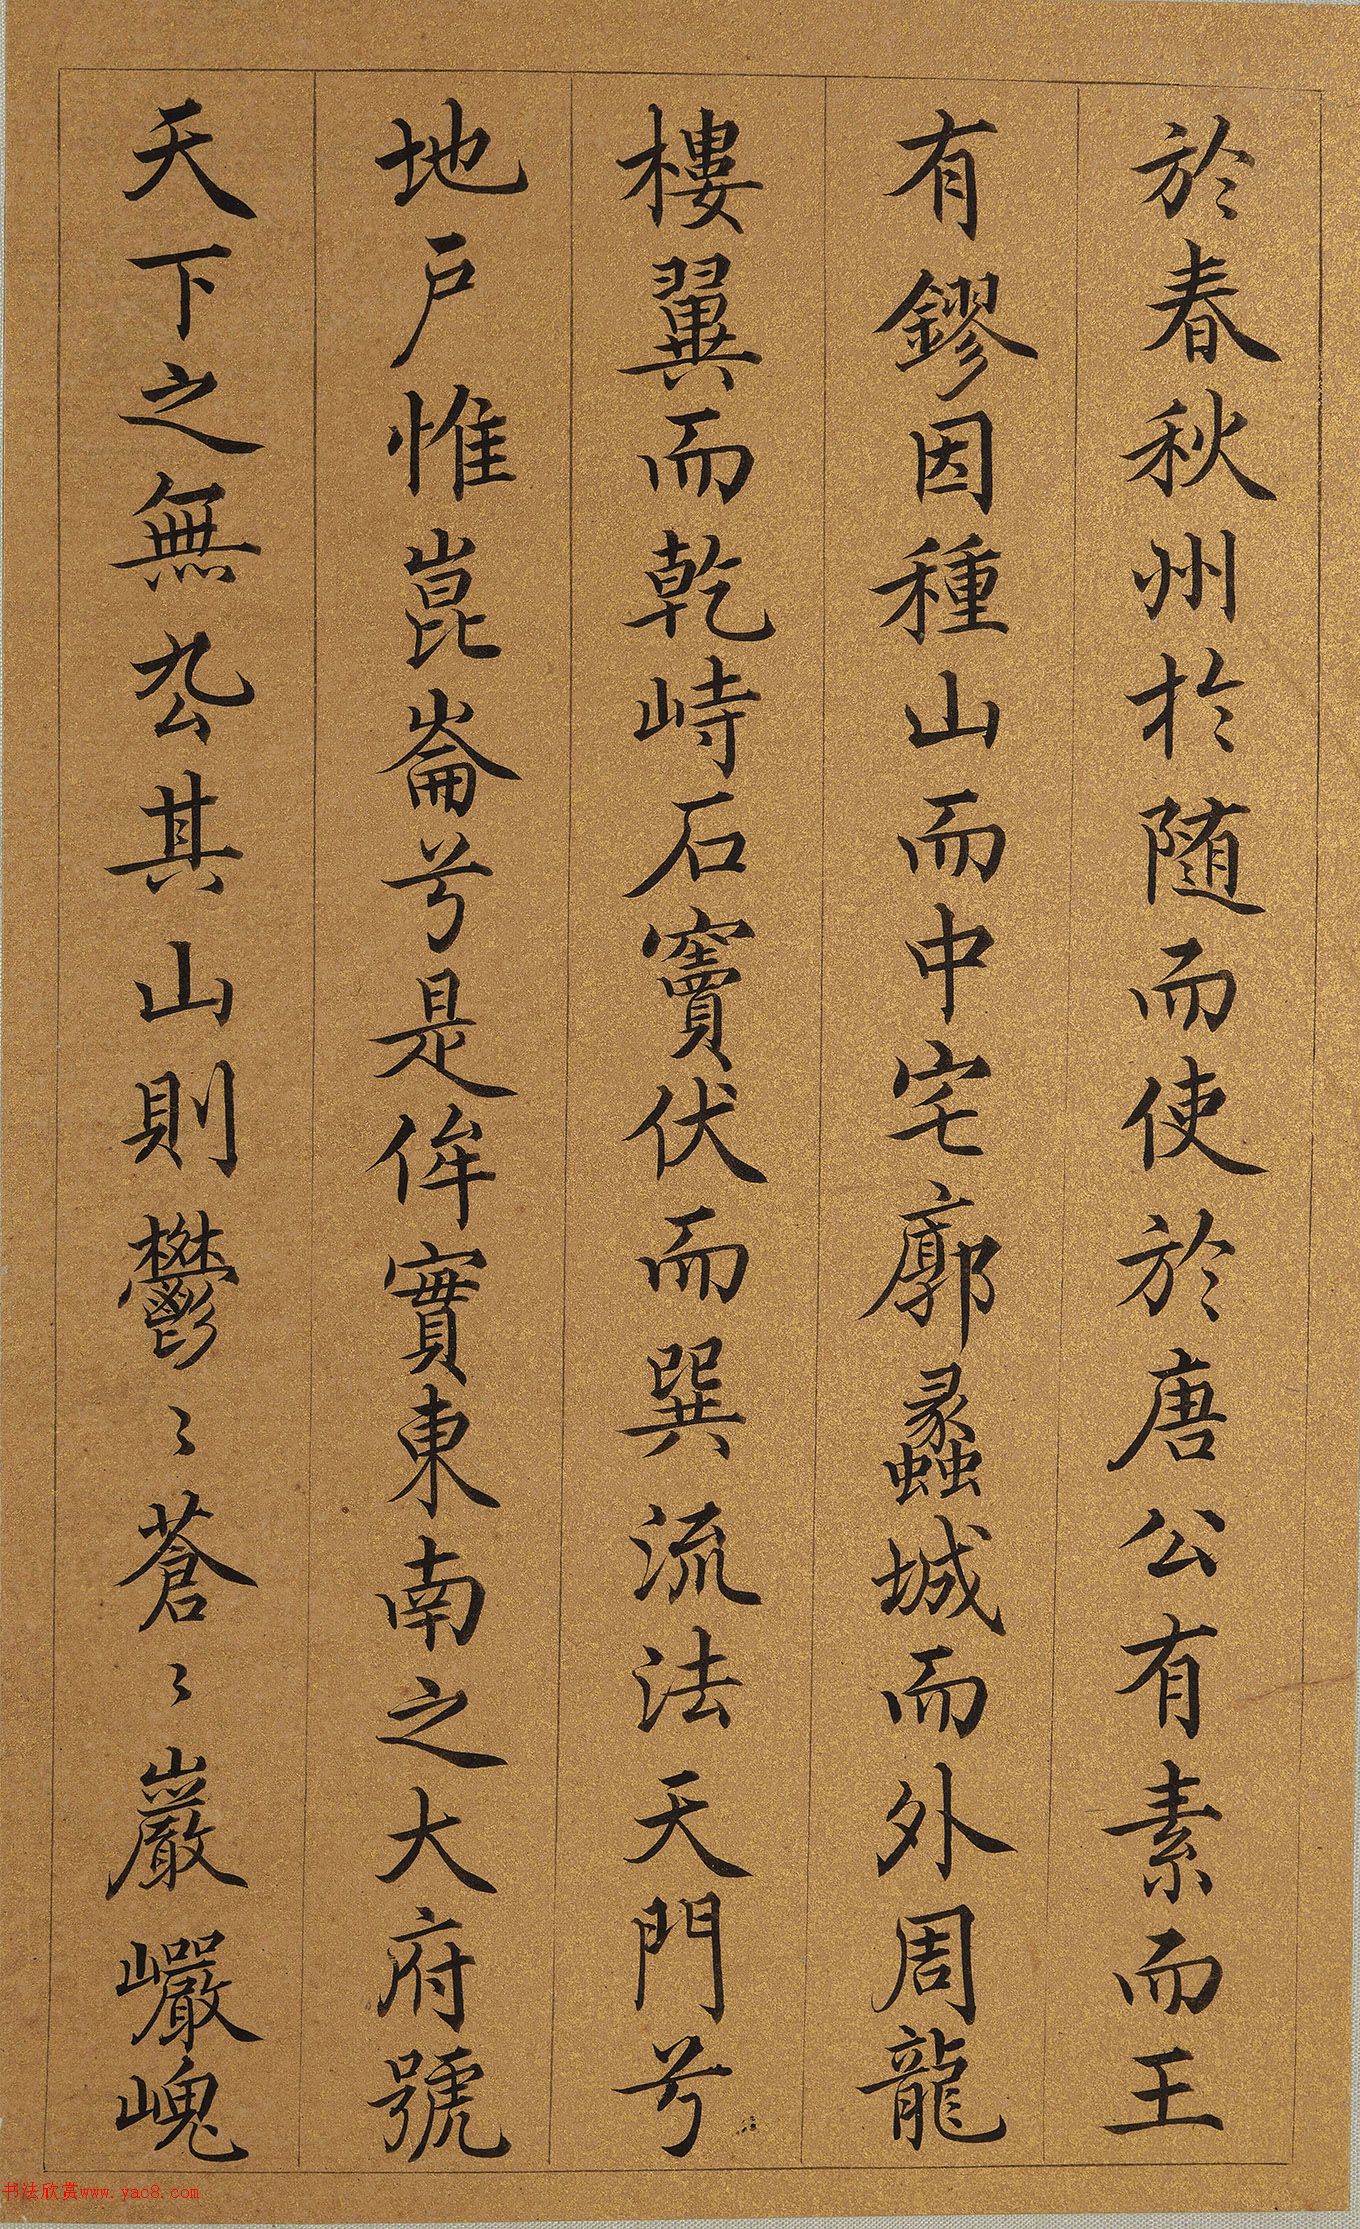 於春秋州於隨而使於唐公有素而王
有鏐因種山而中宅廓蠡城而外周龍
樓翼而乾峙石竇伏而巽流法天門兮
地戶惟崑崙兮是侔實東南之大府號
天下之無㕣其山則鬱〻蒼〻巖巗嵬
书法欣赏www.yac8.com